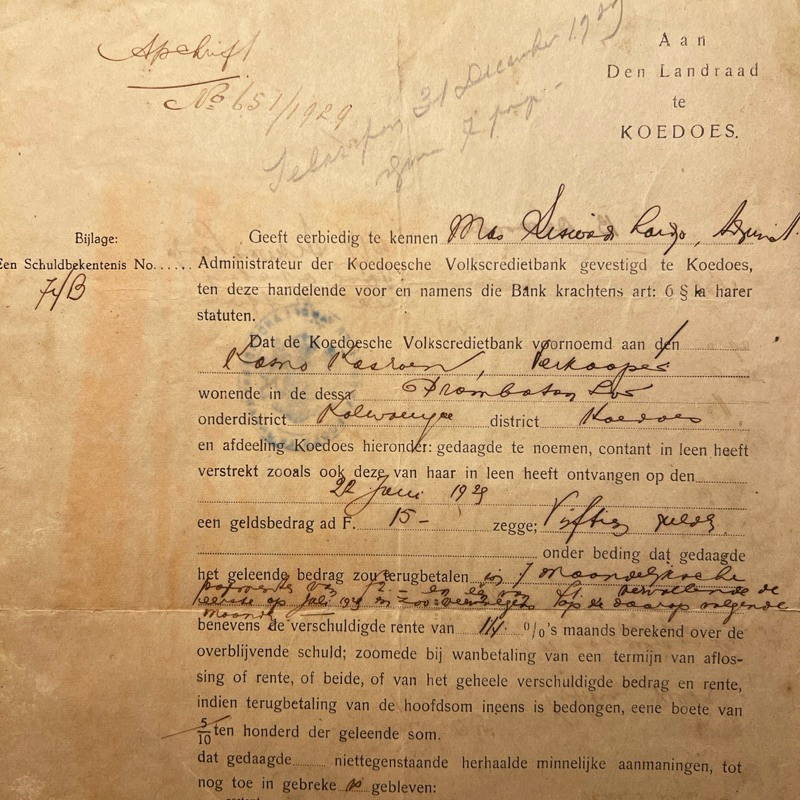 Afschrift
No 651/1929
31 December 1929
Aan
Den Landraad
te
KOEDOES.
Bijlage:
Een Schuldbekentenis No......
7/B
Geeft eerbiedig te kennen Mas
Administrateur der Koedoesche Volkscredietbank gevestigd te Koedoes,
ten deze handelende voor en namens die Bank krachtens art: 6 § 1a harer
statuten.
Dat de Koedoesche Volkscredietbank voornoemd aan den
Kasmo Kasroen, Verkooper
wonende in de dessa
onderdistrict district Koedoes
en afdeeling Koedoes hieronder: gedaagde te noemen, contant in leen heeft
verstrekt zooals ook deze van haar in leen heeft ontvangen op den
22 Juni 1929
een geldsbedrag ad F. 15- zegge; Vijftien gulden
onder beding dat gedaagde
het geleende bedrag zou terugbetalen in 7 maandelijksche
vervallende de
eerste op Juli 1929 op de daarop volgende
maanden
benevens de verschuldigde rente van 1¼ %'s maands berekend over de
overblijvende schuld; zoomede bij wanbetaling van een termijn van aflos-
sing of rente, of beide, of van het geheele verschuldigde bedrag en rente,
indien terugbetaling van de hoofdsom ineens is bedongen, eene boete van
5/10 ten honderd der geleende som.
dat gedaagde niettegenstaande herhaalde minnelijke aanmaningen, tot
nog toe in gebreke is gebleven: